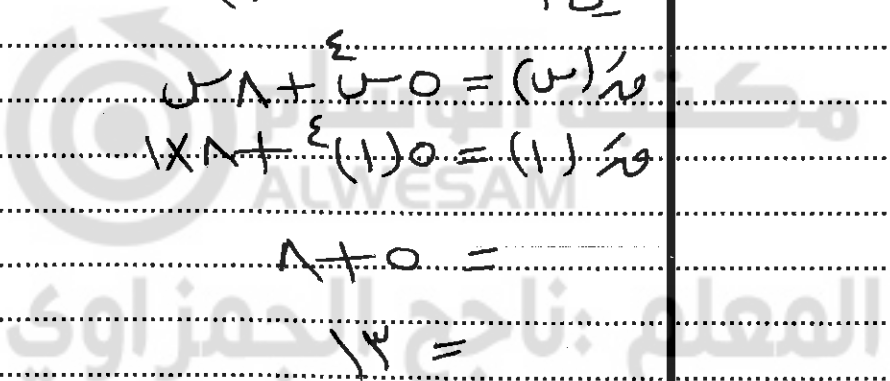 قَ(س) = ٥س^٤ + ٨س
قَ(١) = ٥(١)^٤ + ٨×١
= ٥ + ٨
= ١٣
مكتبة الوسام
ALWESAM
المعلم: ناجح الجمزاوي